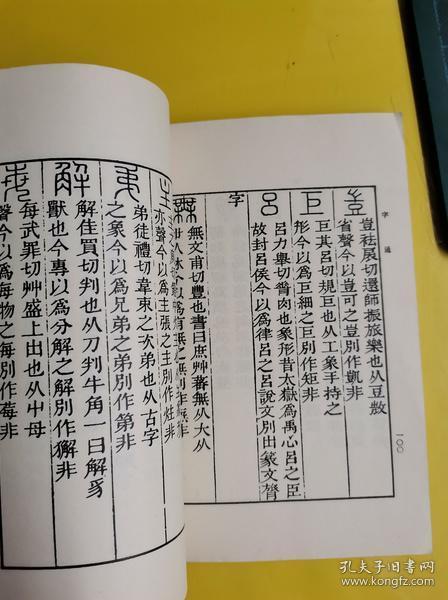 字通
豈祛展切還師振旅樂也从豆敖
省聲今以爲豈可之豈別作凱非
巨其呂切規巨也从工象手持之
形今以爲巨細之巨別作矩非
呂力舉切脊肉也象形昔太嶽爲禹心呂之臣
故封呂侯今以爲律呂之呂說文別出篆文膂
字
無文甫切豐也書曰庶艸蕃無从大从
一〇〇
亦聲今以爲主張之主別作炷非
弟徒禮切韋束之次弟也从古字
之象今以爲兄弟之弟別作第非
解佳買切判也从刀判牛角一曰解豸
獸也今專以爲分解之解別作獬非
每武罪切艸盛上出也从屮母
聲今以爲每物之每別作莓非
孔夫子旧书网
www.kongfz.com